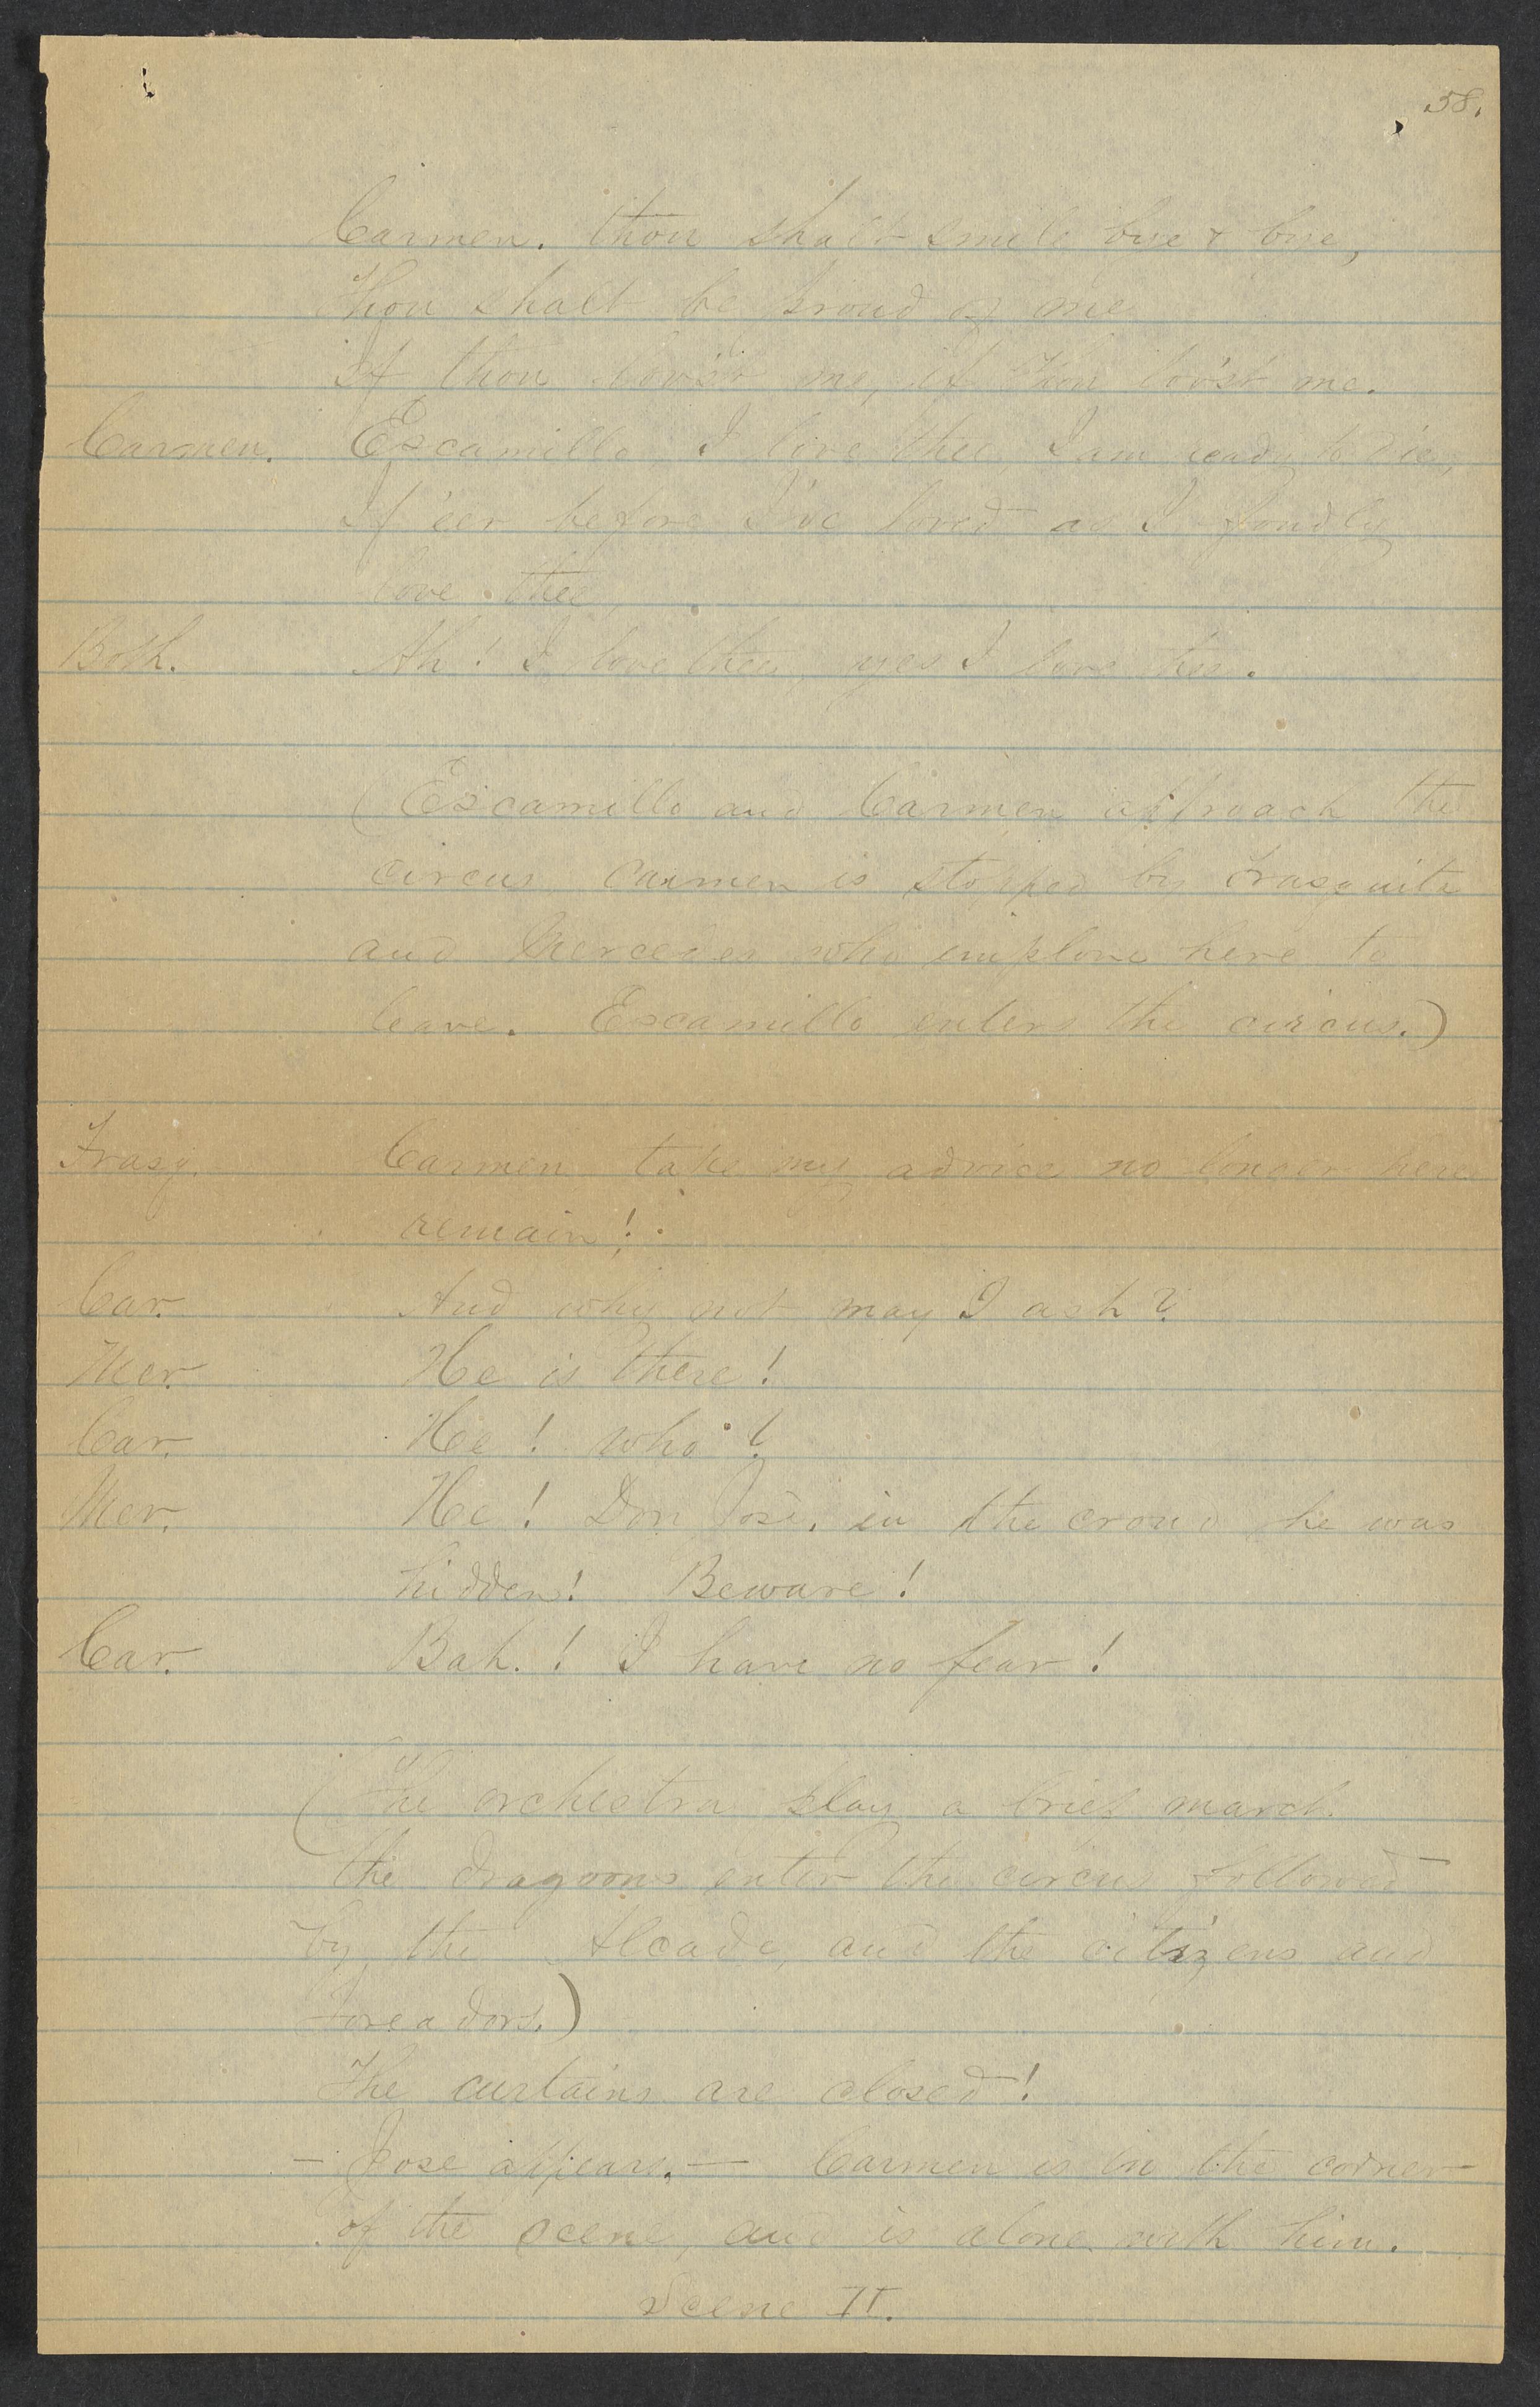 58.
Carmen. thou shalt smile bye & bye,
Thou shalt be proud of me
If thou lov'st me, if thou lov'st me.
Carmen. Escamillo, I love thee, I am ready to die,
If e'er before I've loved as I fondly
love thee,
Both. Ah! I love thee, yes I love thee.
(Escamillo and Carmen approach the
circus Carmen is stopped by Frasquita
and Mercedes who implore here to
leave. Escamillo enters the circus.)
Frasq. Carmen take my advice no longer here
remain!
Car. And why not may I ask?
Mer. He is there!
Car. He! who?
Mer. He! Don José, in the crowd he was
hidden! Beware!
Car. Bah.! I have no fear!
(The orchestra play a brief march.
the dragoons enter the circus followed
by the Alcade, and the citizens and
toreadors.)
The curtains are closed!
- Jose appears. - Carmen is in the corner
of the scene, and is alone with him.
Scene II.